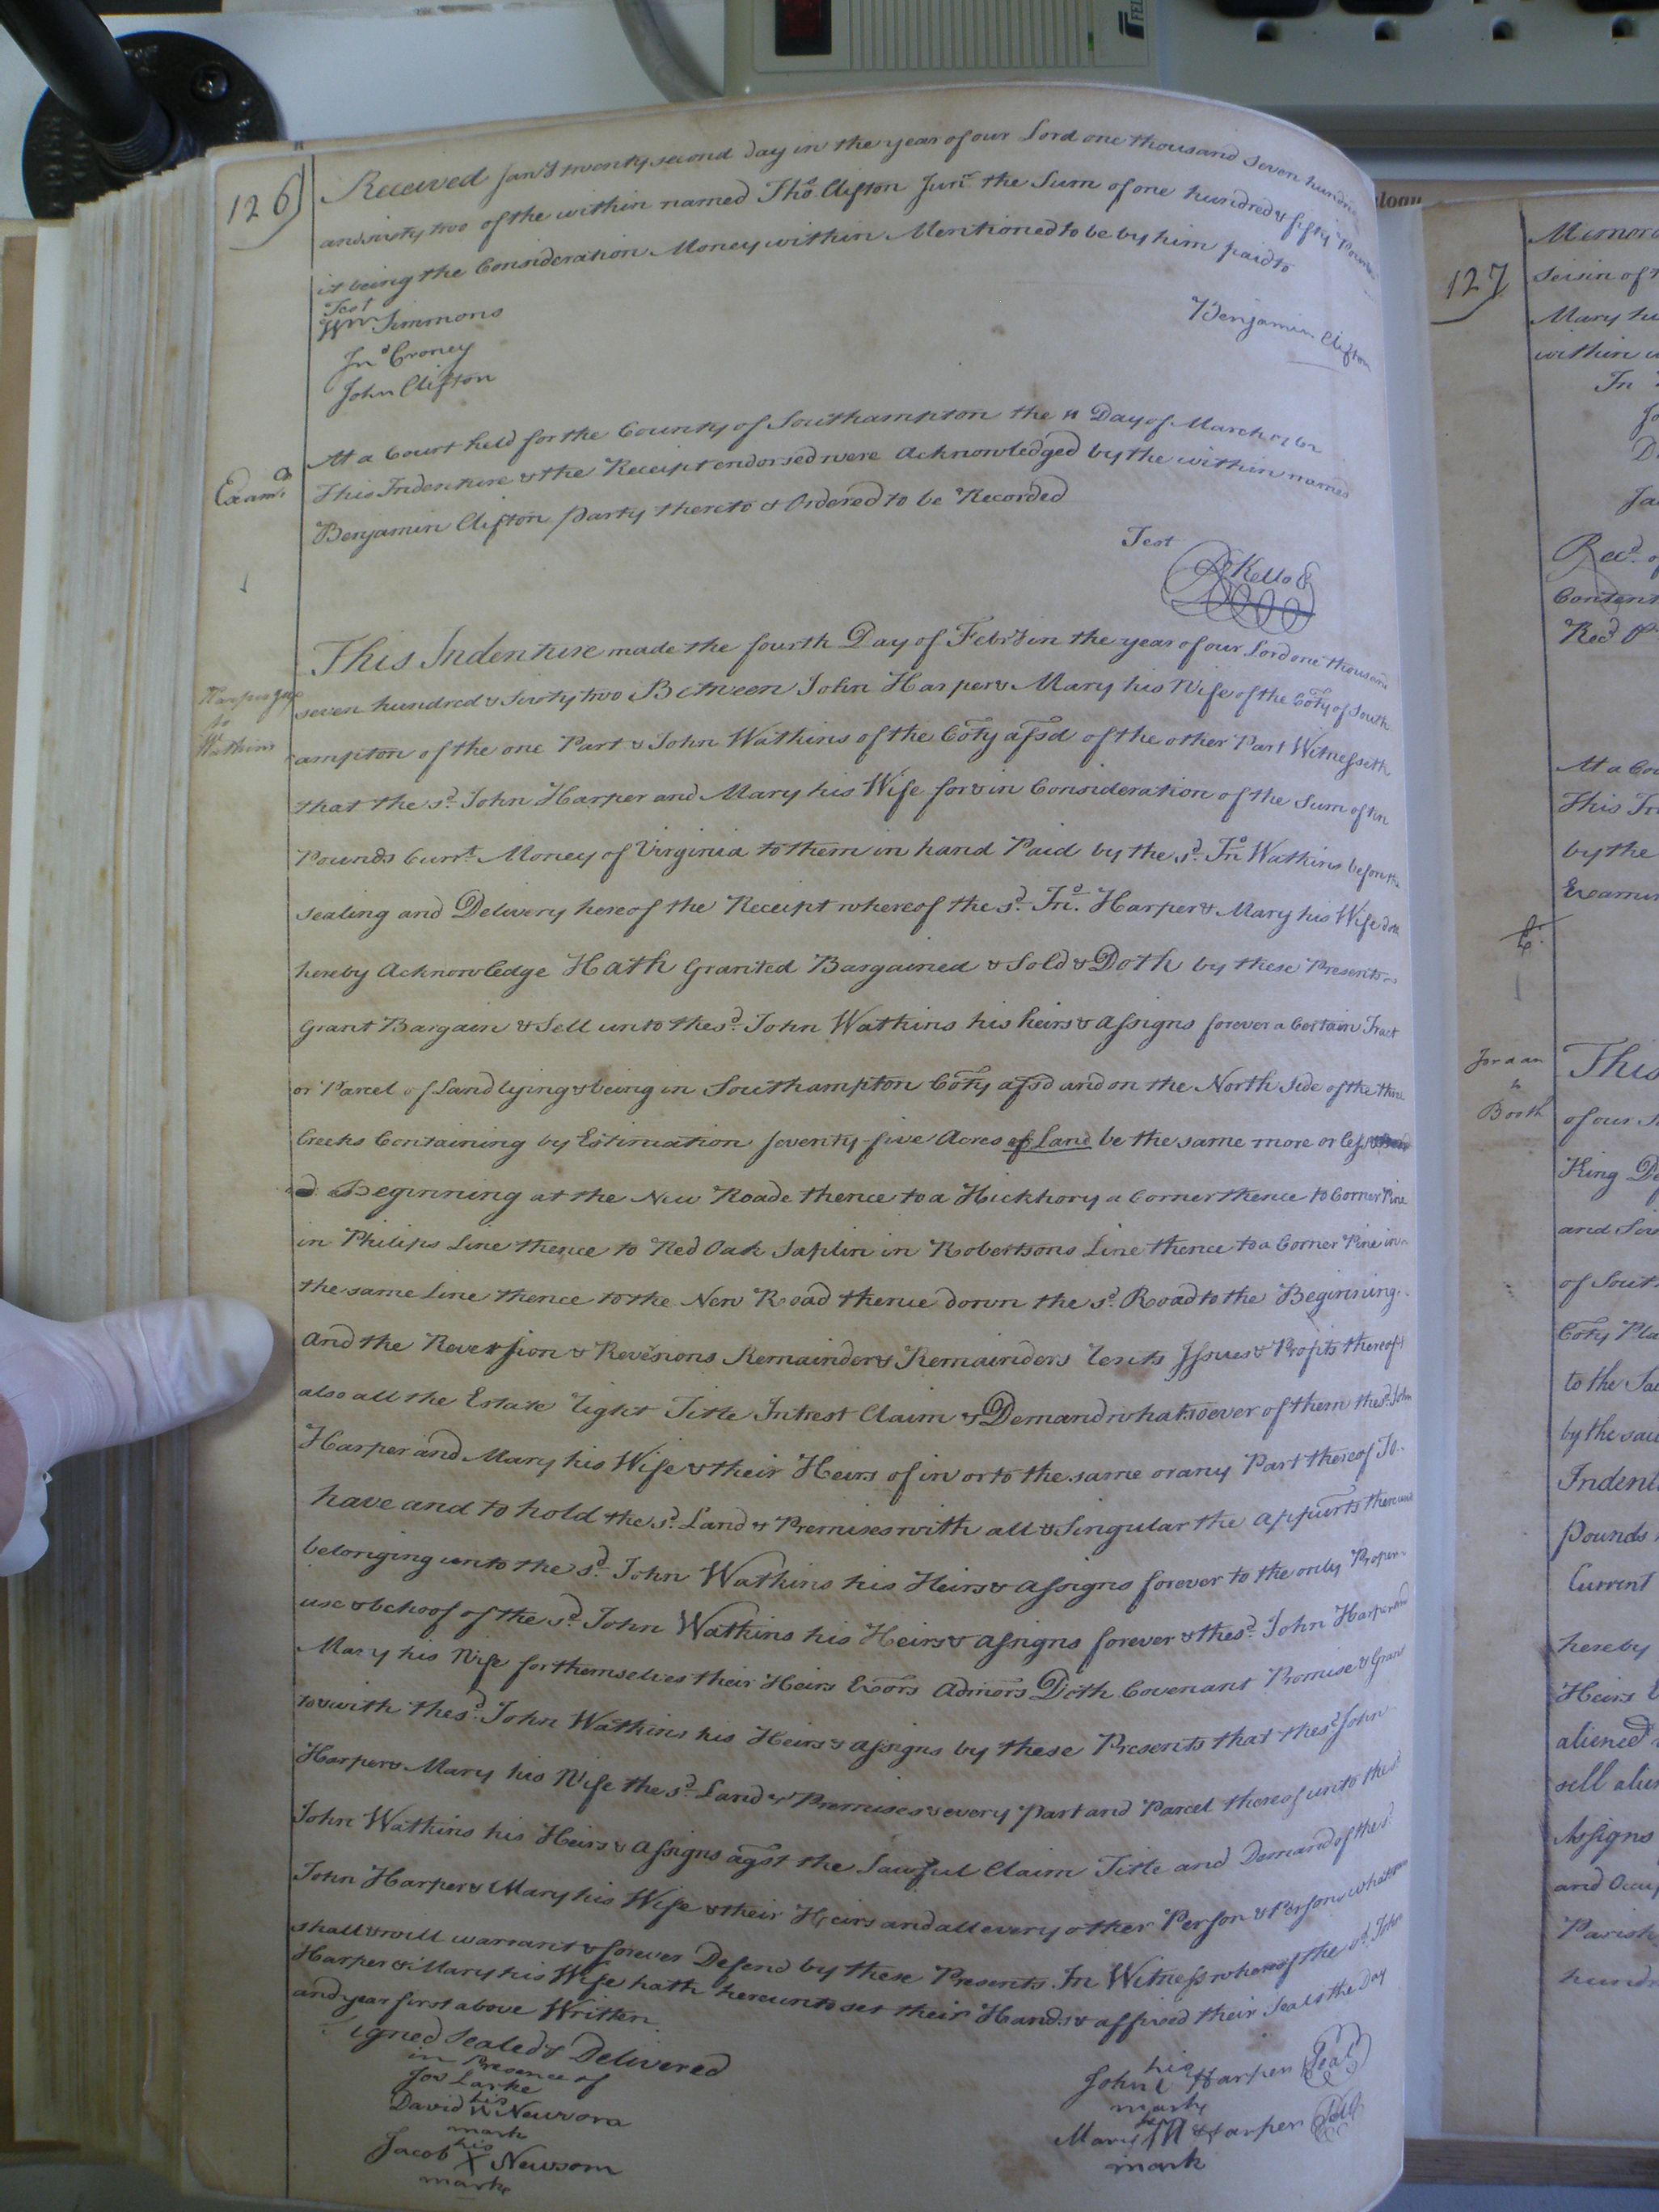 126
Received Jan'y twenty second day in the year of our Lord one thousand seven hundred
and sixty two of the within named Tho.s Clifton Jun.r the Sum of one hundred & fifty Pounds
it being the Consideration Money within Mentioned to be by him paid to
Test
Wm Simmons
Benjamin Clifton
Jn.o Croney
John Clifton
At a Court held for the County of Southampton the 11 Day of March 1762
Exam.d
This Indenture & the Receipt endorsed were Acknowledged by the within named
Benjamin Clifton party thereto & Ordered to be Recorded
Test
R Kello C
This Indenture made the fourth Day of Feb'y in the year of our Lord one thousand
Harper &c
to
Watkins
seven hundred & Sixty two Between John Harper & Mary his Wife of the Coty of South
ampton of the one Part & John Watkins of the Coty afsd of the other Part Witnesseth
that the s.d John Harper and Mary his Wife for & in Consideration of the Sum of
Pounds Curr.t Money of Virginia to them in hand Paid by the s.d Jn.o Watkins before the
sealing and Delivery hereof the Receipt whereof the s.d Jn.o Harper & Mary his Wife doth
hereby Acknowledge Hath Granted Bargained & Sold & Doth by these Presents
Grant Bargain & Sell unto the s.d John Watkins his heirs & Assigns forever a Certain Tract
or Parcel of Land lying & being in Southampton Coty afsd and on the North Side of the three
Creeks Containing by Estimation seventy five Acres of Land be the same more or less
Beginning at the New Roade thence to a Hickhory a Corner thence to Corner Pine
in Philips Line thence to Red Oak Saplin in Robertsons Line thence to a Corner Pine in
the same Line thence to the New Road thence down the s.d Road to the Begining
and the Reversion & Revesions Remainder & Remainders rents Issues & Profits thereof &
also all the Estate right Title Intrest Claim & Demand whatsoever of them the s.d John
Harper and Mary his Wife & their Heirs of in or to the same or any Part thereof To
have and to hold the s.d Land & Premises with all & Singular the appurts thereunto
belonging unto the s.d John Watkins his Heirs & Assigns forever to the only Proper
use & behoof of the s.d John Watkins his Heirs & Assigns forever & the s.d John Harper and
Mary his Wife for themselves their Heirs Exors Admors Doth Covenant Promise & Grant
to & with the s.d John Watkins his Heirs & Assigns by these Presents that the s.d John
Harper & Mary his Wife the s.d Land & Premises & every Part and Parcel thereof unto the s.d
John Watkins his Heirs & Assigns agst the Lawful Claim Title and Demand of the s.d
John Harper & Mary his Wife & their Heirs and all every other Person & Persons whatsoever
shall & will warrant & forever Defend by these Presents In Witness whereof the s.d John
Harper & Mary his Wife hath hereunto set their Hands & affixed their Seals the Day
and year first above Written
Signed Sealed & Delivered
in Presence of
Jos Larke
David his Newsom
mark
Jacob his X Newsom
marke
John his Harper Seal
marke
Mary her M Harper Seal
mark
127
Memora
Seisin of
Mary hi
within
In
Rec.d of
Content
Rec.d
At a Cou
This In
by the
Examin
Jordan
to
Booth
This
of our
King De
and Six
of South
Coty Pla
to the Sai
by the said
Indent
pounds
Current
hereby
Heirs
aliened
sell alien
Assigns
and Occup
Parish
hundr